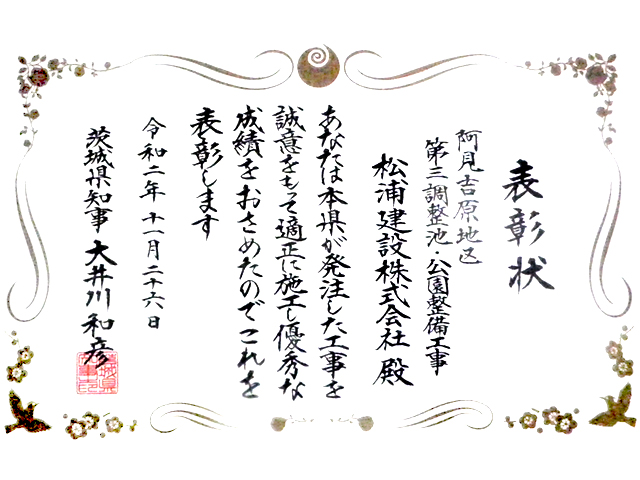 表彰状
阿見吉原地区
第三調整池・公園整備工事
松浦建設株式会社 殿
あなたは本県が発注した工事を
誠意をもって適正に施工し優秀な
成績をおさめたのでこれを
表彰します
令和二年十一月二十六日
茨城県知事 大井川和彦
茨城県
知事印